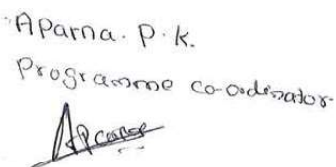 Aparna. P. K.
Programme co-ordinator